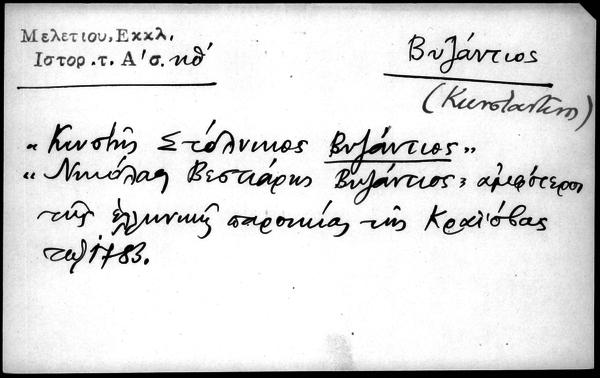 Μελετίου, Εκκλ.
Ιστορ. τ. Α' σ. κθ'
Βυζάντιος
(Κωνσταντίνος)
"Κωστῆς Στόλνικος Βυζάντιος"
"Νικόλαος Βεστιάρης Βυζάντιος", ἀμφότεροι
τῆς ἑλληνικῆς παροικίας τῆς Κραϊόβας
τῷ 1783.